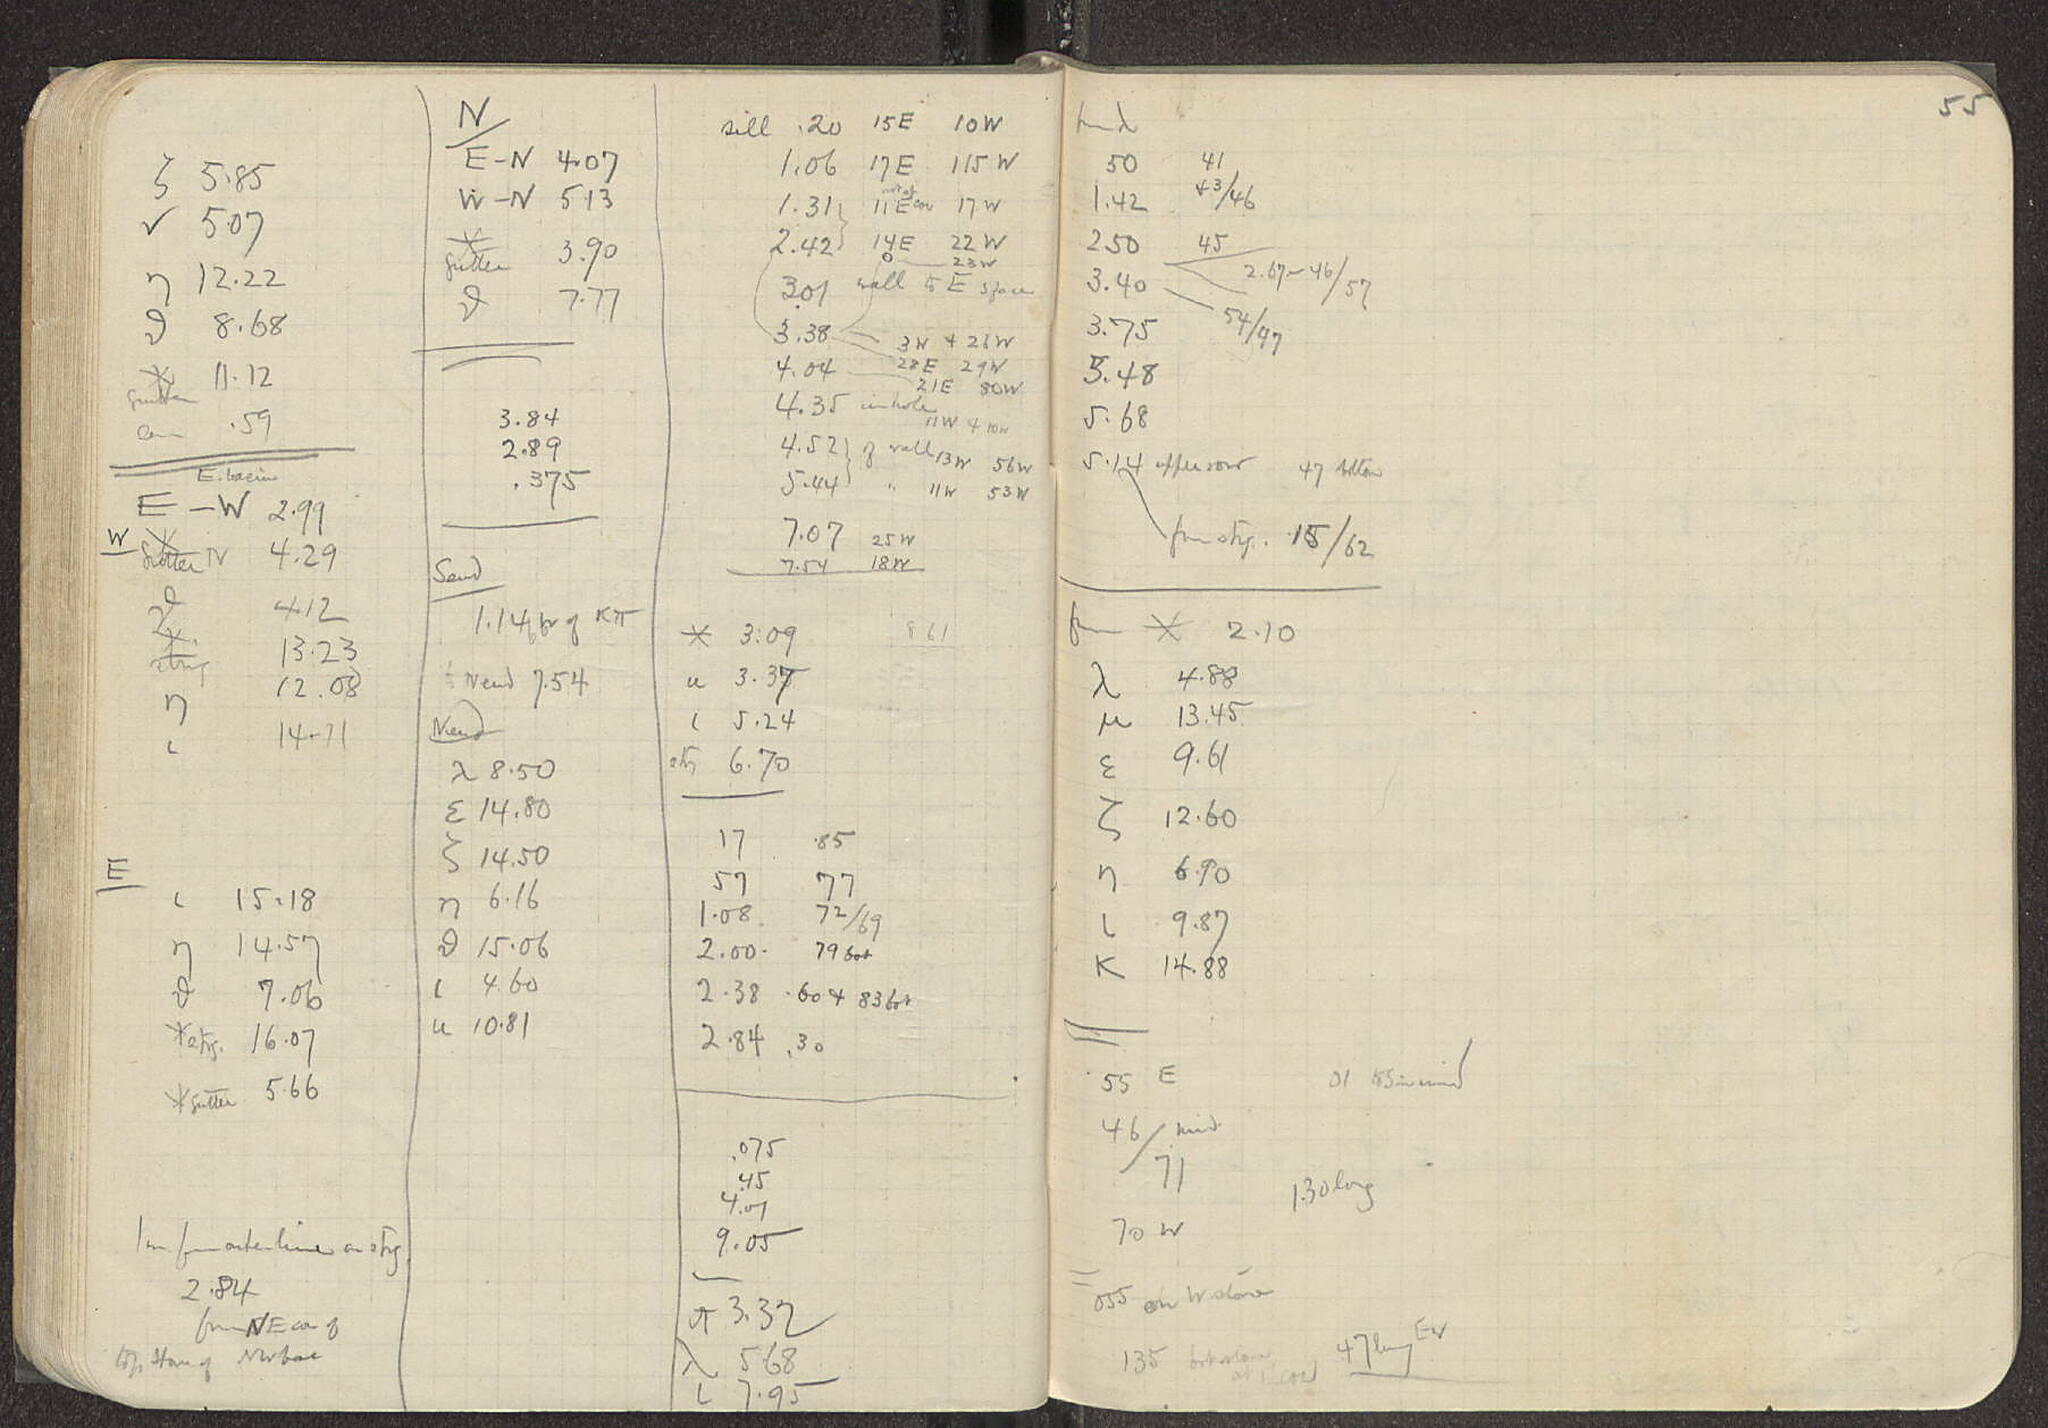 ζ 5.85
ν 5.07
η 12.22
ϑ 8.68
* 11.12
gutter
.59
E. basin
E–W 2.99
W
*
gutter N 4.29
ϑ 4.12
*
stry 13.23
η 12.08
ι 14.71
E
ι 15.18
η 14.57
ϑ 7.06
* stry. 16.07
* gutter 5.66
1m from outer line on stry
2.84
from NE cor of
top stone of NW base
N
E–N 4.07
W–N 5.13
*
gutter 3.90
ϑ 7.77
3.84
2.89
.375
Send
1.14 of κπ
Nend 7.54
Nend
λ 8.50
ε 14.80
ζ 14.50
η 6.16
ϑ 15.06
ι 4.60
κ 10.81
sill .20 15E 10W
1.06 17E 115W
1.31 11E cor 17W
2.42 14E 22W
0 — 23W
3.01 wall to E space
3.38 3W + 26W
4.04 28E 29W
21E 80W
4.35 in hole
11W + 10W
4.52 of wall 13W 56W
5.44 " 11W 53W
7.07 25W
7.54 18W
* 3.09 861
κ 3.37
ι 5.24
stry 6.70
17 .85
57 77
1.08 72/69
2.00 79 bot
2.38 .60 + 83 bot
2.84 .30
.075
.45
4.01
9.05
π 3.32
λ 5.68
ι 7.95
55
from λ
50 41
1.42 43/46
2.50 45
2.67– 46/57
3.40
54/97
3.75
5.48
5.68
5.14 upper row 47 bottom
from stry. 15/62
from * 2.10
λ 4.88
μ 13.45
ε 9.61
ζ 12.60
η 6.90
ι 9.87
κ 14.88
55 E
46/71 mid
1.30 long
70 W
055 on W stone
135
47 long EW